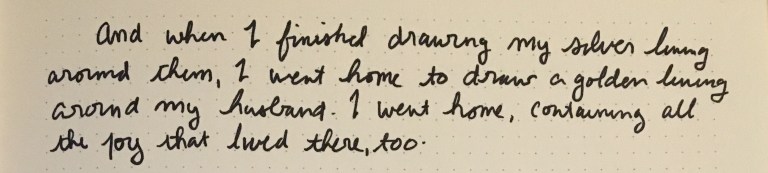 And when I finished drawing my silver lining
around them, I went home to draw a golden lining
around my husband. I went home, containing all
the joy that lived there, too.